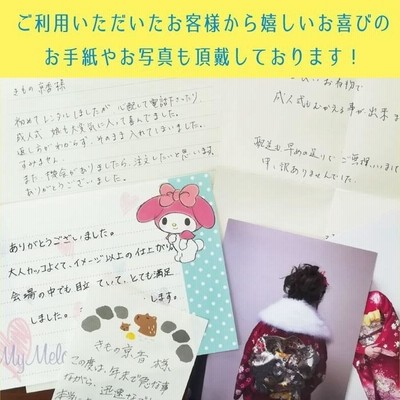 ご利用いただいたお客様から嬉しいお喜びの
お手紙やお写真も頂戴しております！
きもの 京香 様
初めてレンタルしましたが 心配して電話下さったり、
成人式 娘も大変気に入って喜んでました。
返し方がわからず、そのまま入れてしまいました。
すみません。
また 機会がありましたら、注文したいと思います。
ありがとうございました。
お着物で
成人式をむかえる事が出来ま
配送も早めの送りでご迷惑
申し訳ありませんでした。
ありがとうございました。
大人カッコよくて、イメージ以上の仕上がり
会場の中でも目立っていて、とても満足
しました。
します。
My Melo
きもの京香 様
この度は、年末で急な事
ながら、迅速な
本当に